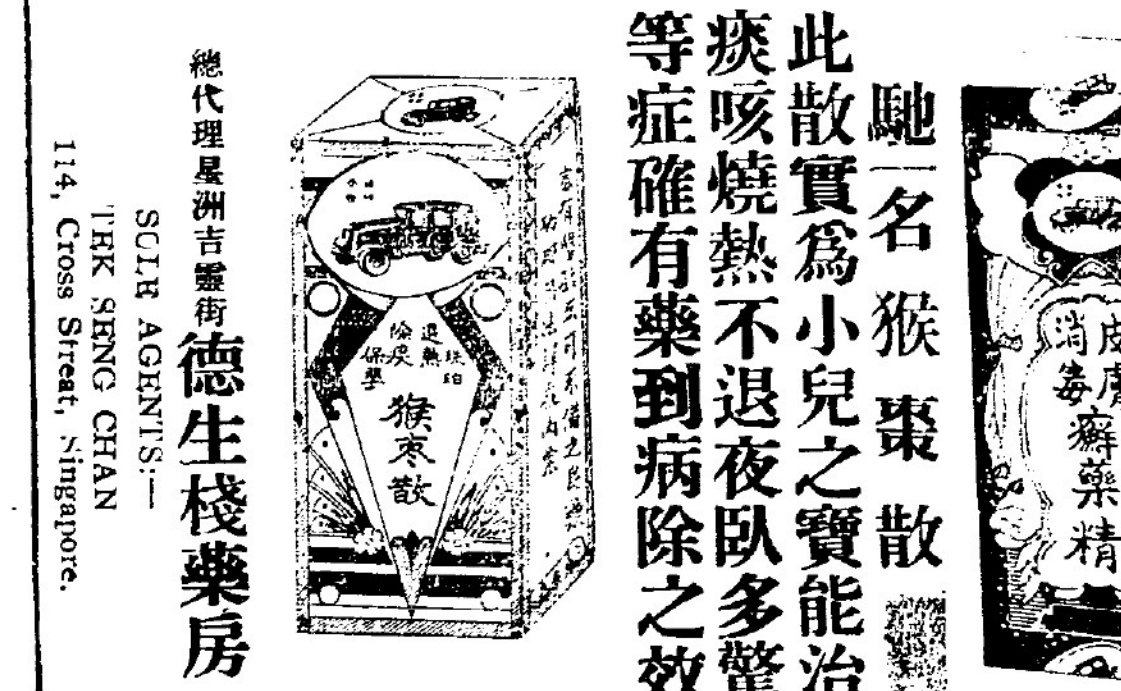 皮膚
消毒
癬藥精
馳名猴棗散
此散實爲小兒之寶能治
痰咳燒熱不退夜臥多驚
等症確有藥到病除之效
珠珀
退熱
除痰
保嬰
猴枣散
總代理星洲吉靈街德生棧藥房
SOLE AGENTS:—
TEK SENG CHAN
114, Cross Street, Singapore.